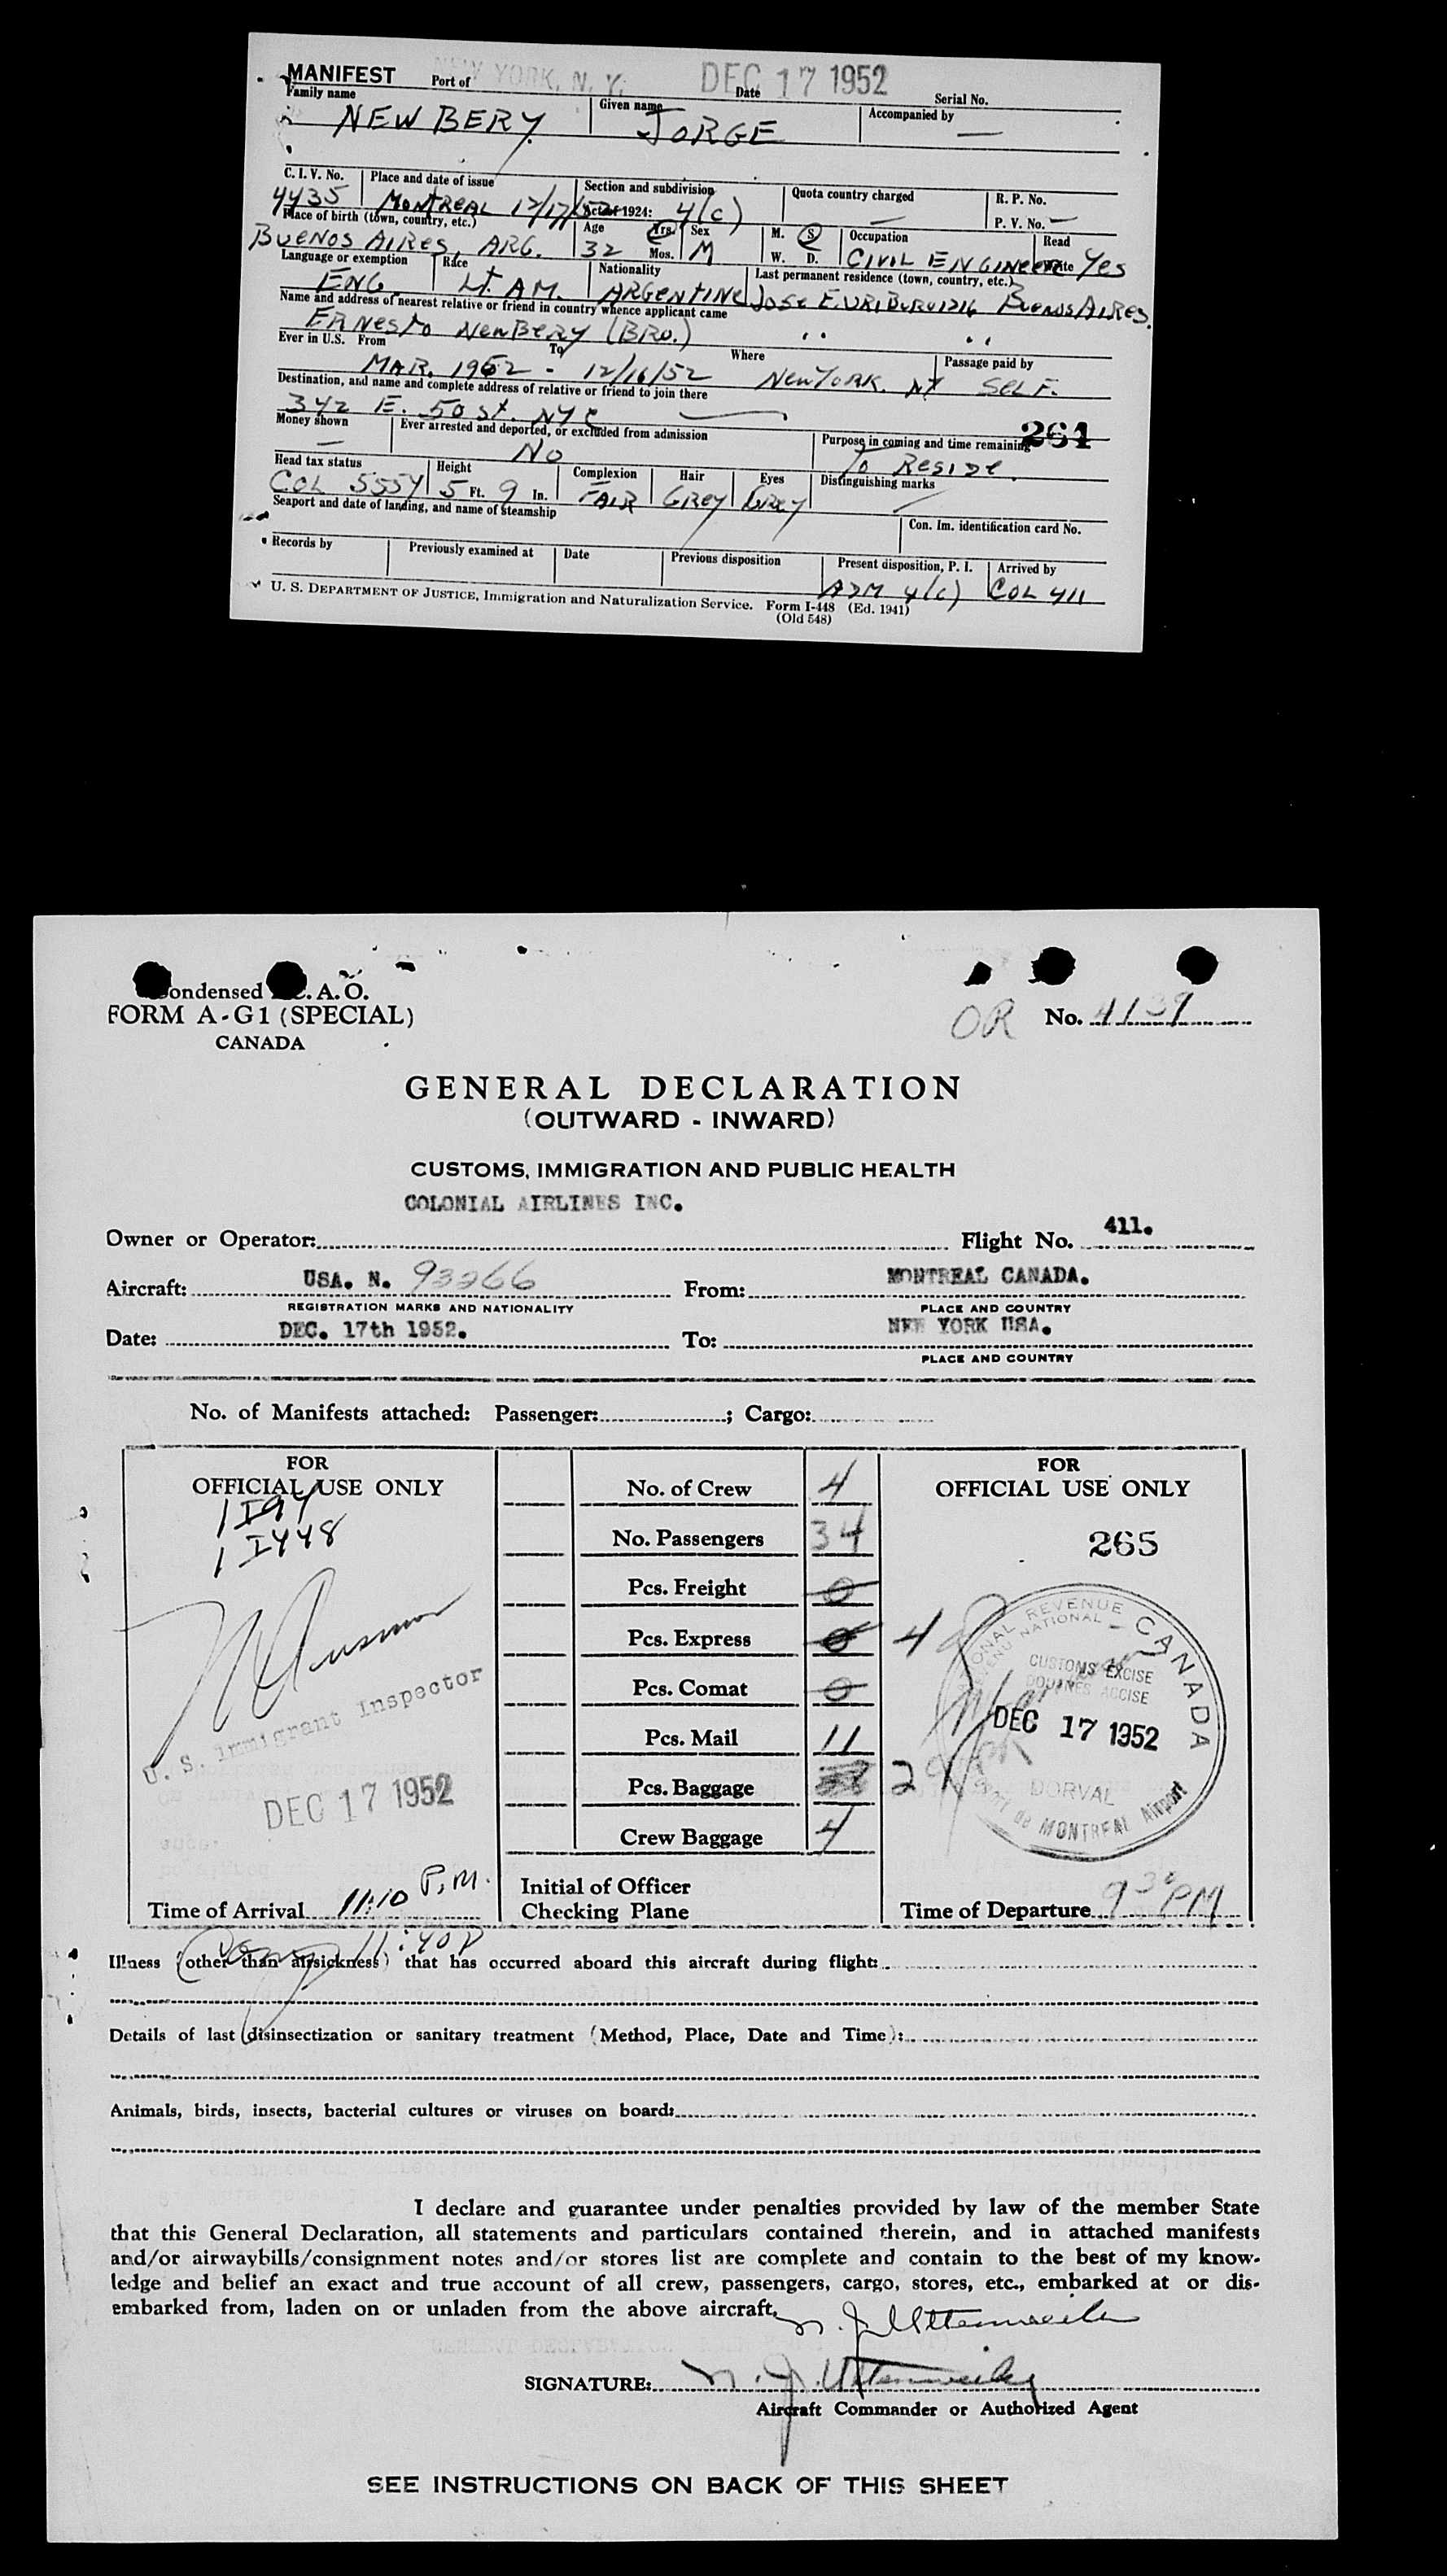 MANIFEST Port of NEW YORK, N. Y. Date DEC 17 1952 Serial No.
Family name Given name Accompanied by
NEWBERY JORGE —
C. I. V. No. Place and date of issue Section and subdivision Quota country charged R. P. No.
4435 MONTREAL 12/17/52 Act of 1924: 4(c) — P. V. No. —
Place of birth (town, country, etc.) Age Yrs. Sex M. S. Occupation Read
BUENOS AIRES, ARG. 32 Mos. M W. D. CIVIL ENGINEER Write Yes
Language or exemption Race Nationality Last permanent residence (town, country, etc.)
ENG. Lt. AM. ARGENTINE JOSE E. URIBURU 1216 BUENOS AIRES.
Name and address of nearest relative or friend in country whence applicant came
ERNESTO NEWBERY (BRO.) " "
Ever in U.S. From To Where Passage paid by
MAR. 1952 - 12/16/52 NEW YORK. NY SELF.
Destination, and name and complete address of relative or friend to join there
342 E. 50 St. NYC —
264
Money shown Ever arrested and deported, or excluded from admission Purpose in coming and time remaining
— No To RESIDE.
Head tax status Height Complexion Hair Eyes Distinguishing marks
COL 5554 5 Ft. 9 In. FAIR GREY GREY
Seaport and date of landing, and name of steamship Con. Im. identification card No.
Records by Previously examined at Date Previous disposition Present disposition, P. I. Arrived by
ADM 4(c) COL 411
U. S. DEPARTMENT OF JUSTICE, Immigration and Naturalization Service. Form I-448 (Ed. 1941)
(Old 548)
Condensed A. O.
FORM A-G1 (SPECIAL) OR No. 4139
CANADA
GENERAL DECLARATION
(OUTWARD - INWARD)
CUSTOMS, IMMIGRATION AND PUBLIC HEALTH
COLONIAL AIRLINES INC.
Owner or Operator: Flight No. 411.
Aircraft: USA. N. 93266 From: MONTREAL CANADA.
REGISTRATION MARKS AND NATIONALITY PLACE AND COUNTRY
Date: DEC. 17th 1952. To: NEW YORK USA.
PLACE AND COUNTRY
No. of Manifests attached: Passenger: ; Cargo:
FOR
OFFICIAL USE ONLY
1 I94
1 I448
U. S. Immigrant Inspector
DEC 17 1952
Time of Arrival 11:10 P.M.
No. of Crew 4
No. Passengers 34
Pcs. Freight 0
Pcs. Express 0 4
Pcs. Comat 0
Pcs. Mail 11
Pcs. Baggage 29
Crew Baggage 4
Initial of Officer
Checking Plane
FOR
OFFICIAL USE ONLY
265
NATIONAL REVENUE CANADA
REVENU NATIONAL
CUSTOMS EXCISE
DOUANES ACCISE
DEC 17 1952
DORVAL
MONTREAL Airport
Time of Departure 9 30 PM
11:40P
Illness (other than airsickness) that has occurred aboard this aircraft during flight:
Details of last disinsectization or sanitary treatment (Method, Place, Date and Time):
Animals, birds, insects, bacterial cultures or viruses on board:
I declare and guarantee under penalties provided by law of the member State
that this General Declaration, all statements and particulars contained therein, and in attached manifests
and/or airwaybills/consignment notes and/or stores list are complete and contain to the best of my know-
ledge and belief an exact and true account of all crew, passengers, cargo, stores, etc., embarked at or dis-
embarked from, laden on or unladen from the above aircraft.
SIGNATURE:
Aircraft Commander or Authorized Agent
SEE INSTRUCTIONS ON BACK OF THIS SHEET